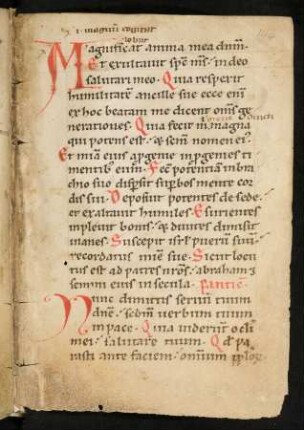 Magnificat anima mea dnm
Et exultauit spc ms. in deo
salutari meo. Quia respexit
humilitatem ancille sue ecce eni
ex hoc beatam me dicent oms ge
nerationes. Quia fecit m magna
qui potens est. & scm nomen ei
Et mia eius a pgenie in pgenies ti
mentib eum. Fec potentiam in bra
chio suo dispsit supbos mente cor
dis sui. Deposuit potentes de sede.
et exaltauit humiles. Esurientes
impleuit bonis. & diuites dimisit
inanes. Suscepit isrl pueru suu.
recordatus mie sue. Sicut locu
tus est ad patres nros. abraham &
semini eius in secula.
Nunc dimittis seruu tuum
dne. scdm uerbum tuum
in pace. Quia uiderut ocli
mei. salutare tuum. Qd pa
rasti ante faciem. omnium